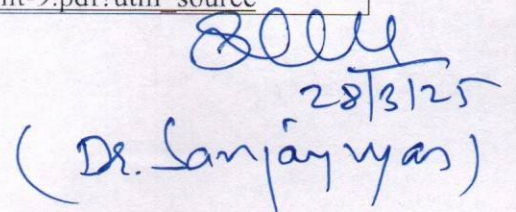 nt-9.pdf?utm_source
28/3/25
(Dr. Sanjay vyas)